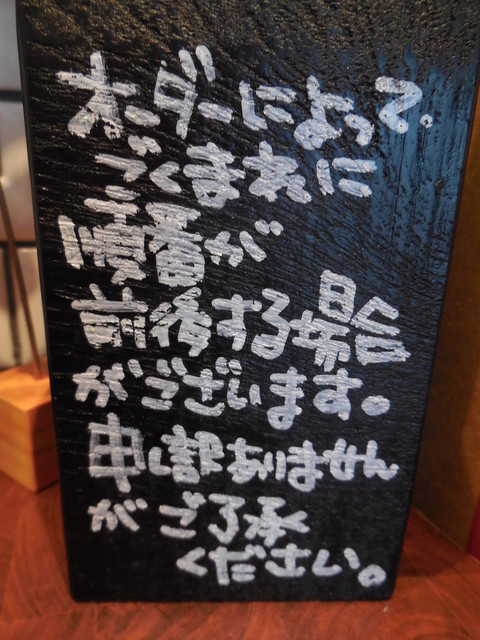 オーダーによって、
ごくまれに
順番が
前後する場合
がございます。
申し訳ありません
がご了承
ください。